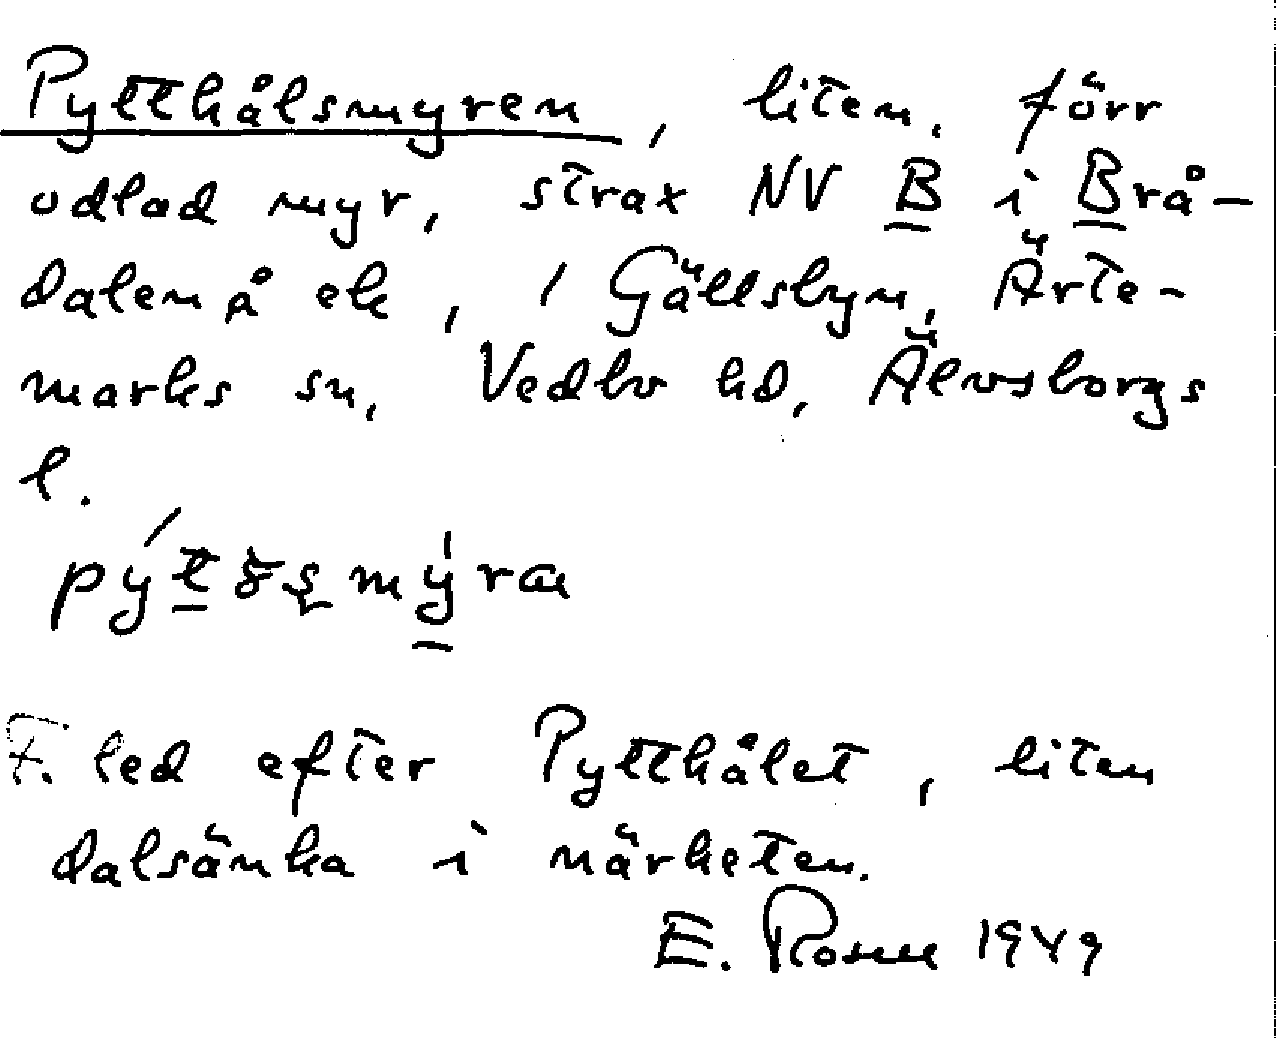 Pytthålsmyren, liten, förr
odlad myr, strax NV B i Brå-
dalen å ek, i Gällsbyn, Ärte-
marks sn, Vedbo hd, Älvsborgs
l.
F. led efter Pytthålet, liten
dalsänka i närheten.
E. Rosell 1949